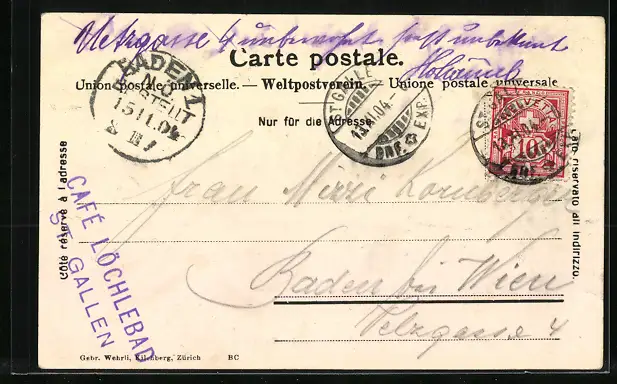 Metzgasse 4 unbewohnt
Carte postale.
Union postale universelle. — Weltpostverein. — Unione postale universale
Nur für die Adresse
Côté réservé à l'adresse
Lato riservato all'indirizzo.
BADEN 1
N.Ö.
BESTELLT
15.11.04
ST. GALLEN
13.XI.04
BRF. EXP.
HELVETIA
10
CAFÉ LÖCHLEBAD
ST. GALLEN
Frau Mizzi Kornberger
Baden bei Wien
Pelzgasse 4
Gebr. Wehrli, Kilchberg, Zürich BC